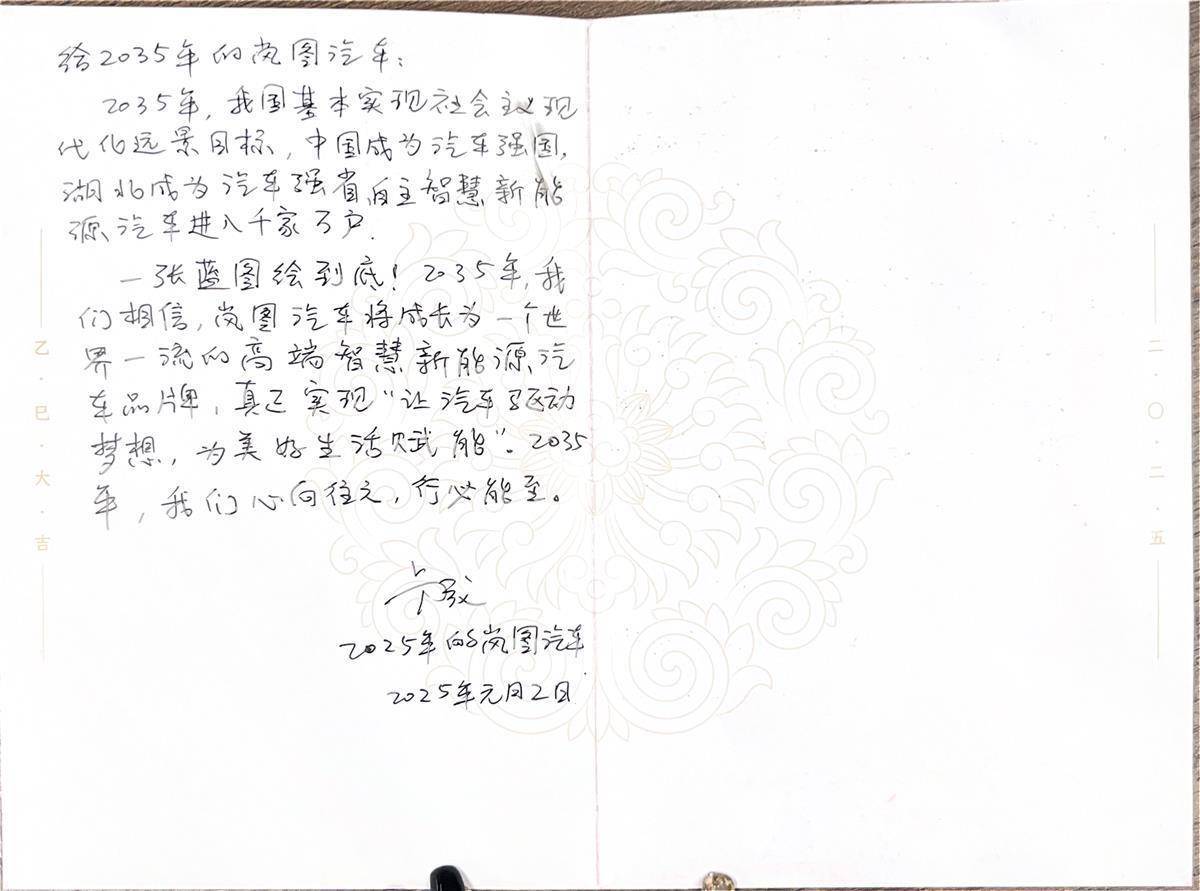 给2035年的岚图汽车：
2035年，我国基本实现社会主义现
代化远景目标，中国成为汽车强国，
湖北成为汽车强省，自主智慧新能
源汽车进入千家万户.
一张蓝图绘到底！2035年，我
们相信，岚图汽车将成长为一个世
界一流的高端智慧新能源汽
车品牌，真正实现“让汽车驱动
梦想，为美好生活赋能”。2035
年，我们心向往之，行必能至。
卢放
2025年的岚图汽车
2025年元月2日
乙·巳·大·吉
二〇二五